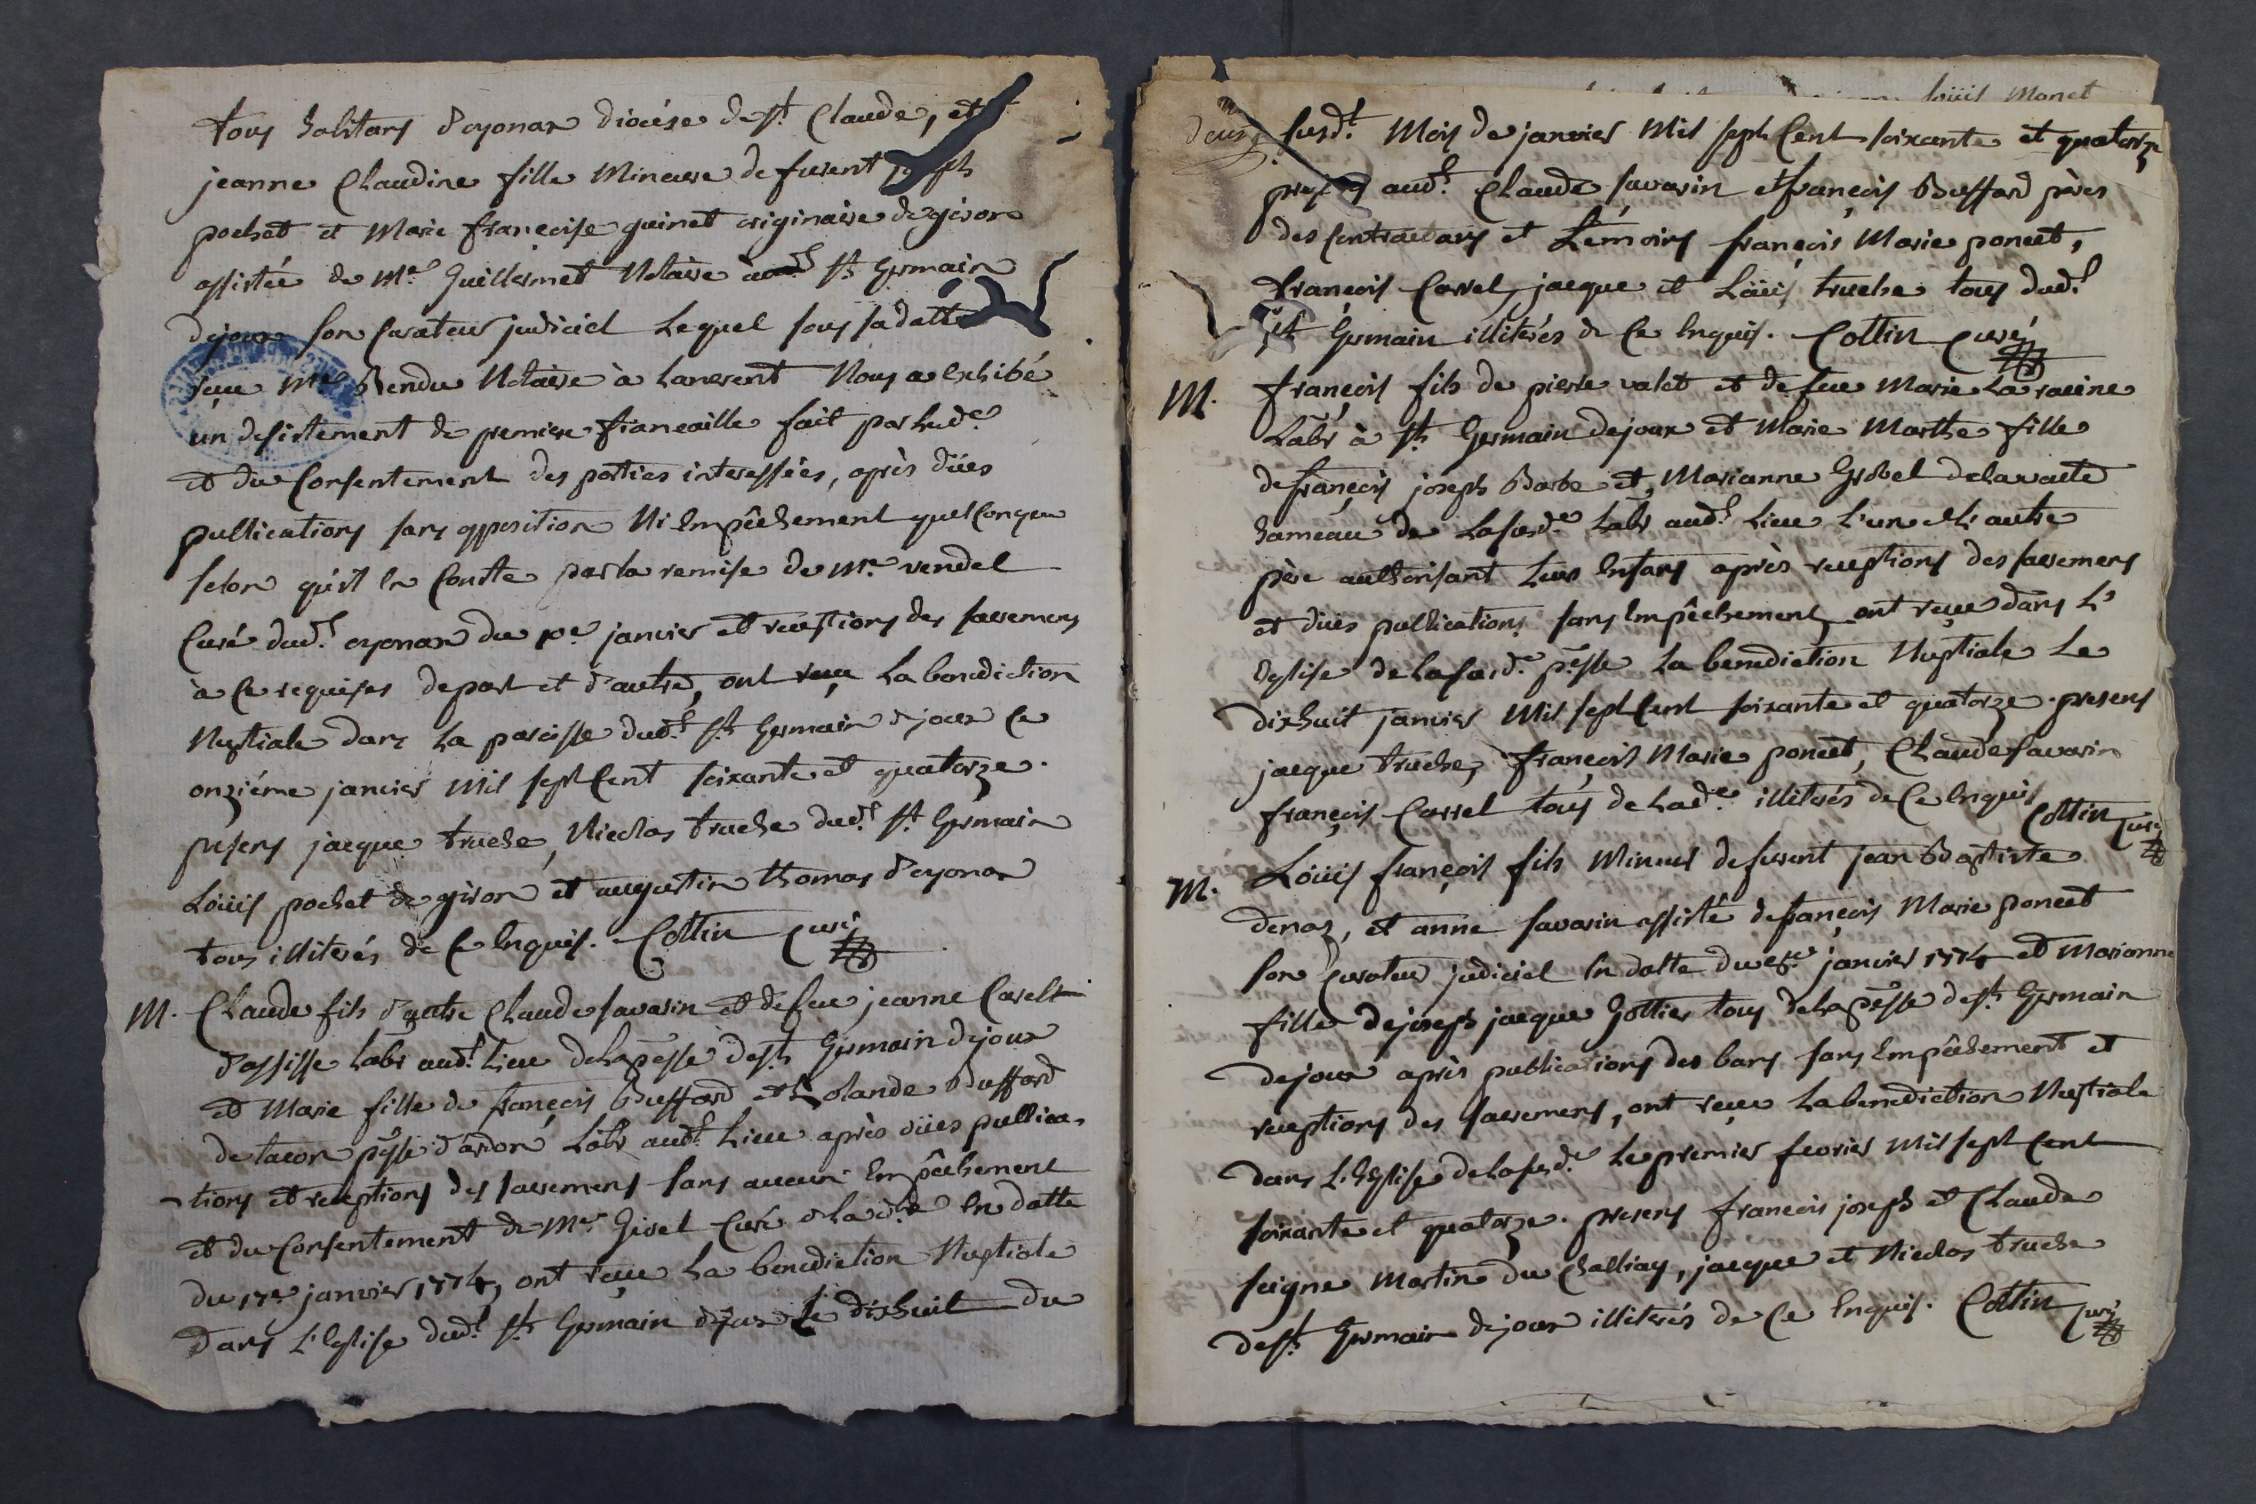 tous habitans d'oyonax diocèse de st Claude, et
jeanne Claudine fille Mineure de furent joseph
pochet et Marie françoise guinet originaire de giron
assistée de Me Guillermet Notaire audt st Germain
dejoux son Curateur judiciel Lequel sous sa datte
reçue Me Bendu Notaire à Nous a Exhibé
un desistement de premiere fiancaille fait par Lade
et du Consentement des parties interessées, après düs
publications sans opposition Ni Empêchement quelConque
selon qu'il En Conste par la remise de Mr vendel
Curé dudt oyonax du janvier et receptions des sacremens
à Ce requises de part et d'autre, ont reçu La benediction
Nuptiale dans La paroisse dudt st Germain dejoux Ce
onziéme janvier Mil sept Cent soixante et quatorze.
presens jacque truche, Nicolas truche dudt st Germain
Loüis pochet de giron et augustin thomas d'oyonax
tous illiterés de Ce Enquis. Cottin Curé
M. Claude fils d'autre Claude savarin et de feue jeanne Carelt
d'assisse Labr audt Lieu de la pesse de st Germain dejoux
et Marie fille de françois Buffard et Rolande Buffard
de tacon psse d'ardon Labr audt Lieu après düs publica-
tions et receptions des sacremens sans aucun Empêchement
et du Consentement de Mr Girel Curé de la de En datte
du 17e janvier 1774, ont reçu La benediction Nuptiale
dans L'Eglise dudt st Germain dejoux Le dixhuit du
susdt Mois de janvier Mil sept Cent soixante et quatorze
audt Claude savarin et françois Buffard pères
des Contractans et Témoins françois Marie poncet,
françois Carrel, jacque et Loüis truche tous dudt
st Germain illiterés de Ce Enquis. Cottin Curé
M. françois fils de pierre valet et de feue Marie La racine
Labr à st Germain dejoux et Marie Marthe fille
de françois joseph Barbe et Marianne Grobel
hameau de La susde Labr audt Lieu L'un et L'autre
père authorisant Leurs Enfans après receptions des sacremens
et düs publications sans Empêchement ont reçu dans L'
Eglise de La susde pesse La benediction Nuptiale Le
dixhuit janvier Mil sept Cent soixante et quatorze. presens
jacque truche, françois Marie poncet, Claude savarin
françois Carrel tous de Lade illiterés de Ce Enquis
Cottin Curé
M. Loüis françois fils Mineur de furent jean Baptiste
denaz, et anne savarin assisté de françois Marie poncet
son Curateur judiciel En datte du janvier 1774 et Marianne
fille de joseph jacque Gottier tous de La pesse de st Germain
dejoux après publications des bans sans Empêchement et
receptions des sacremens, ont reçu La benediction Nuptiale
dans L'Eglise de La susde Le premier fevrier Mil sept Cent
soixante et quatorze. presens françois joseph et Claude
seigne Martin du , jacque et Nicolas truche
de st Germain dejoux illiterés de Ce Enquis. Cottin Curé